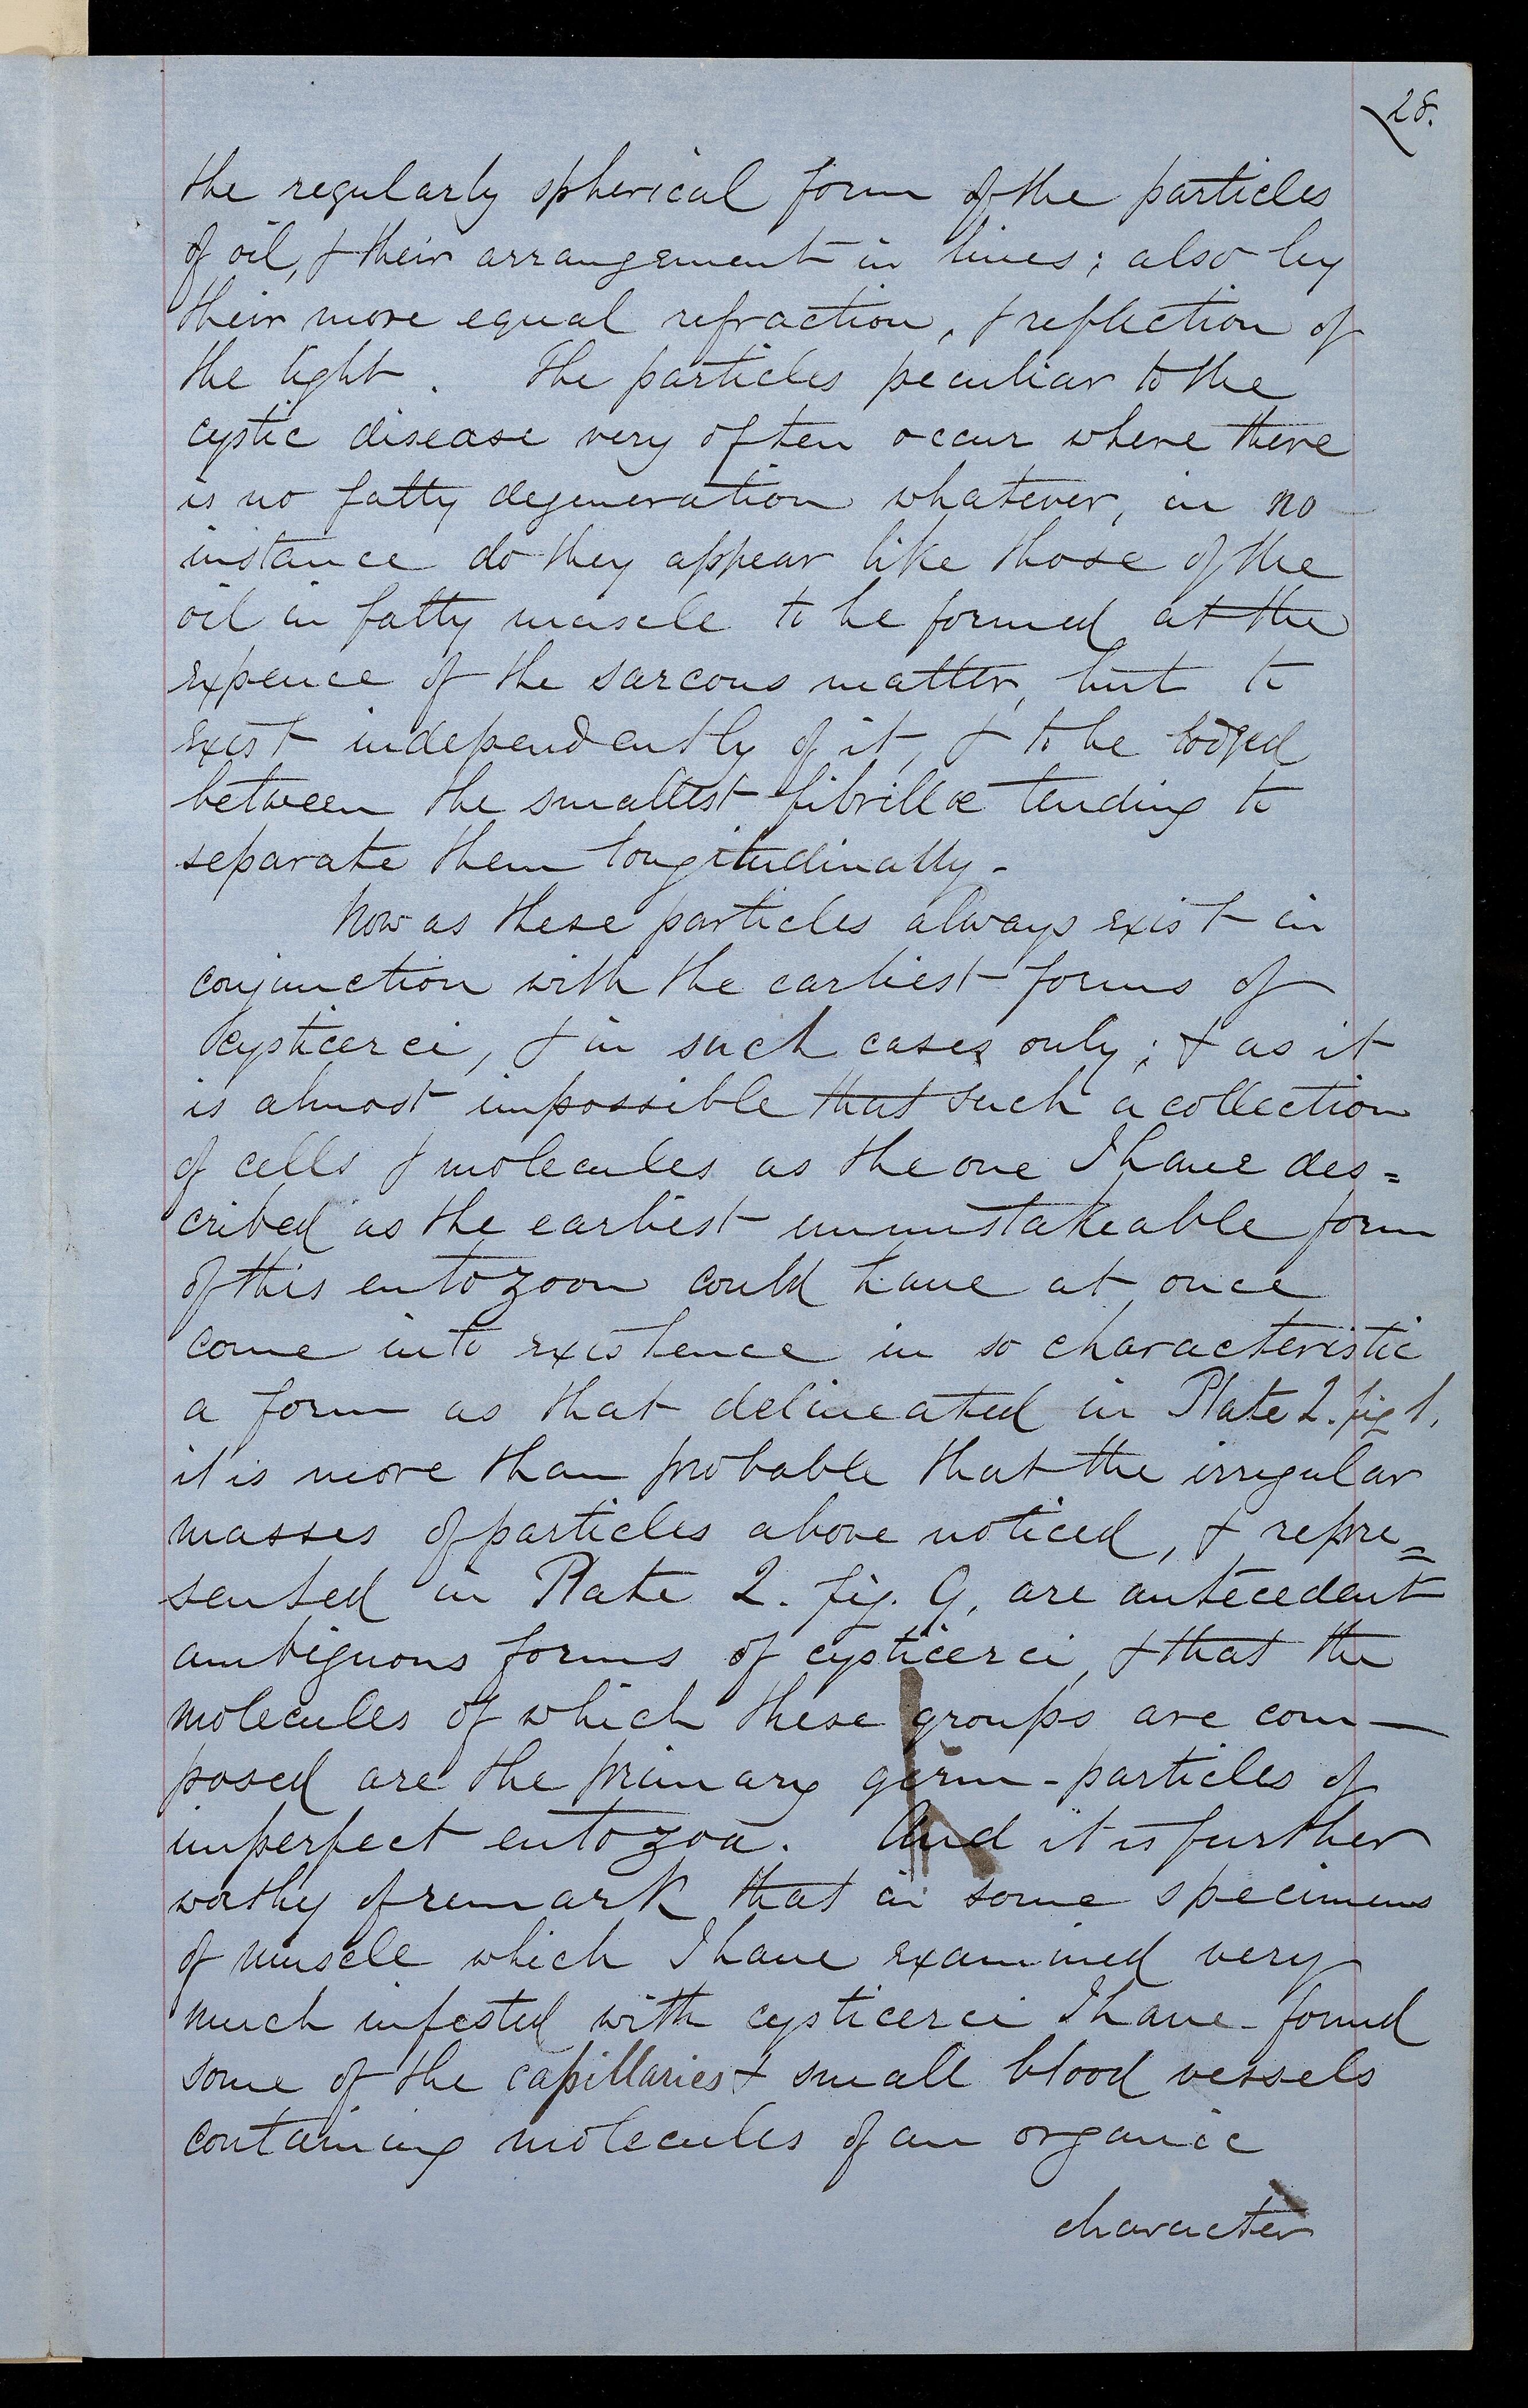 28.
the regularly spherical form of the particles
of oil, & their arrangement in lines; also by
their more equal refraction, & reflection of
the light. The particles peculiar to the
cystic disease very often occur where there
is no fatty degeneration whatever, in no
instance do they appear like those of the
oil in fatty muscle to be formed at the
expence of the sarcous matter, but to
exist independently of it, & to be lodged
between the smallest fibrillæ tending to
separate them longitudinally.
Now as these particles always exist in
conjunction with the earliest forms of
cysticerci, & in such cases only; & as it
is almost impossible that such a collection
of cells & molecules as the one I have des=
cribed as the earliest unmistakeable form
of this entozoon could have at once
come into existence in so characteristic
a form as that delineated in Plate 2. fig 1,
it is more than probable that the irregular
masses of particles above noticed, & repre=
sented in Plate 2. fig. 9, are antecedent
ambiguous forms of cysticerci, & that the
molecules of which these groups are com-
posed are the primary germ-particles of
imperfect entozoa. And it is further
worthy of remark that in some specimens
of muscle which I have examined very
much infested with cysticerci I have found
some of the capillaries & small blood vessels
containing molecules of an organic
character